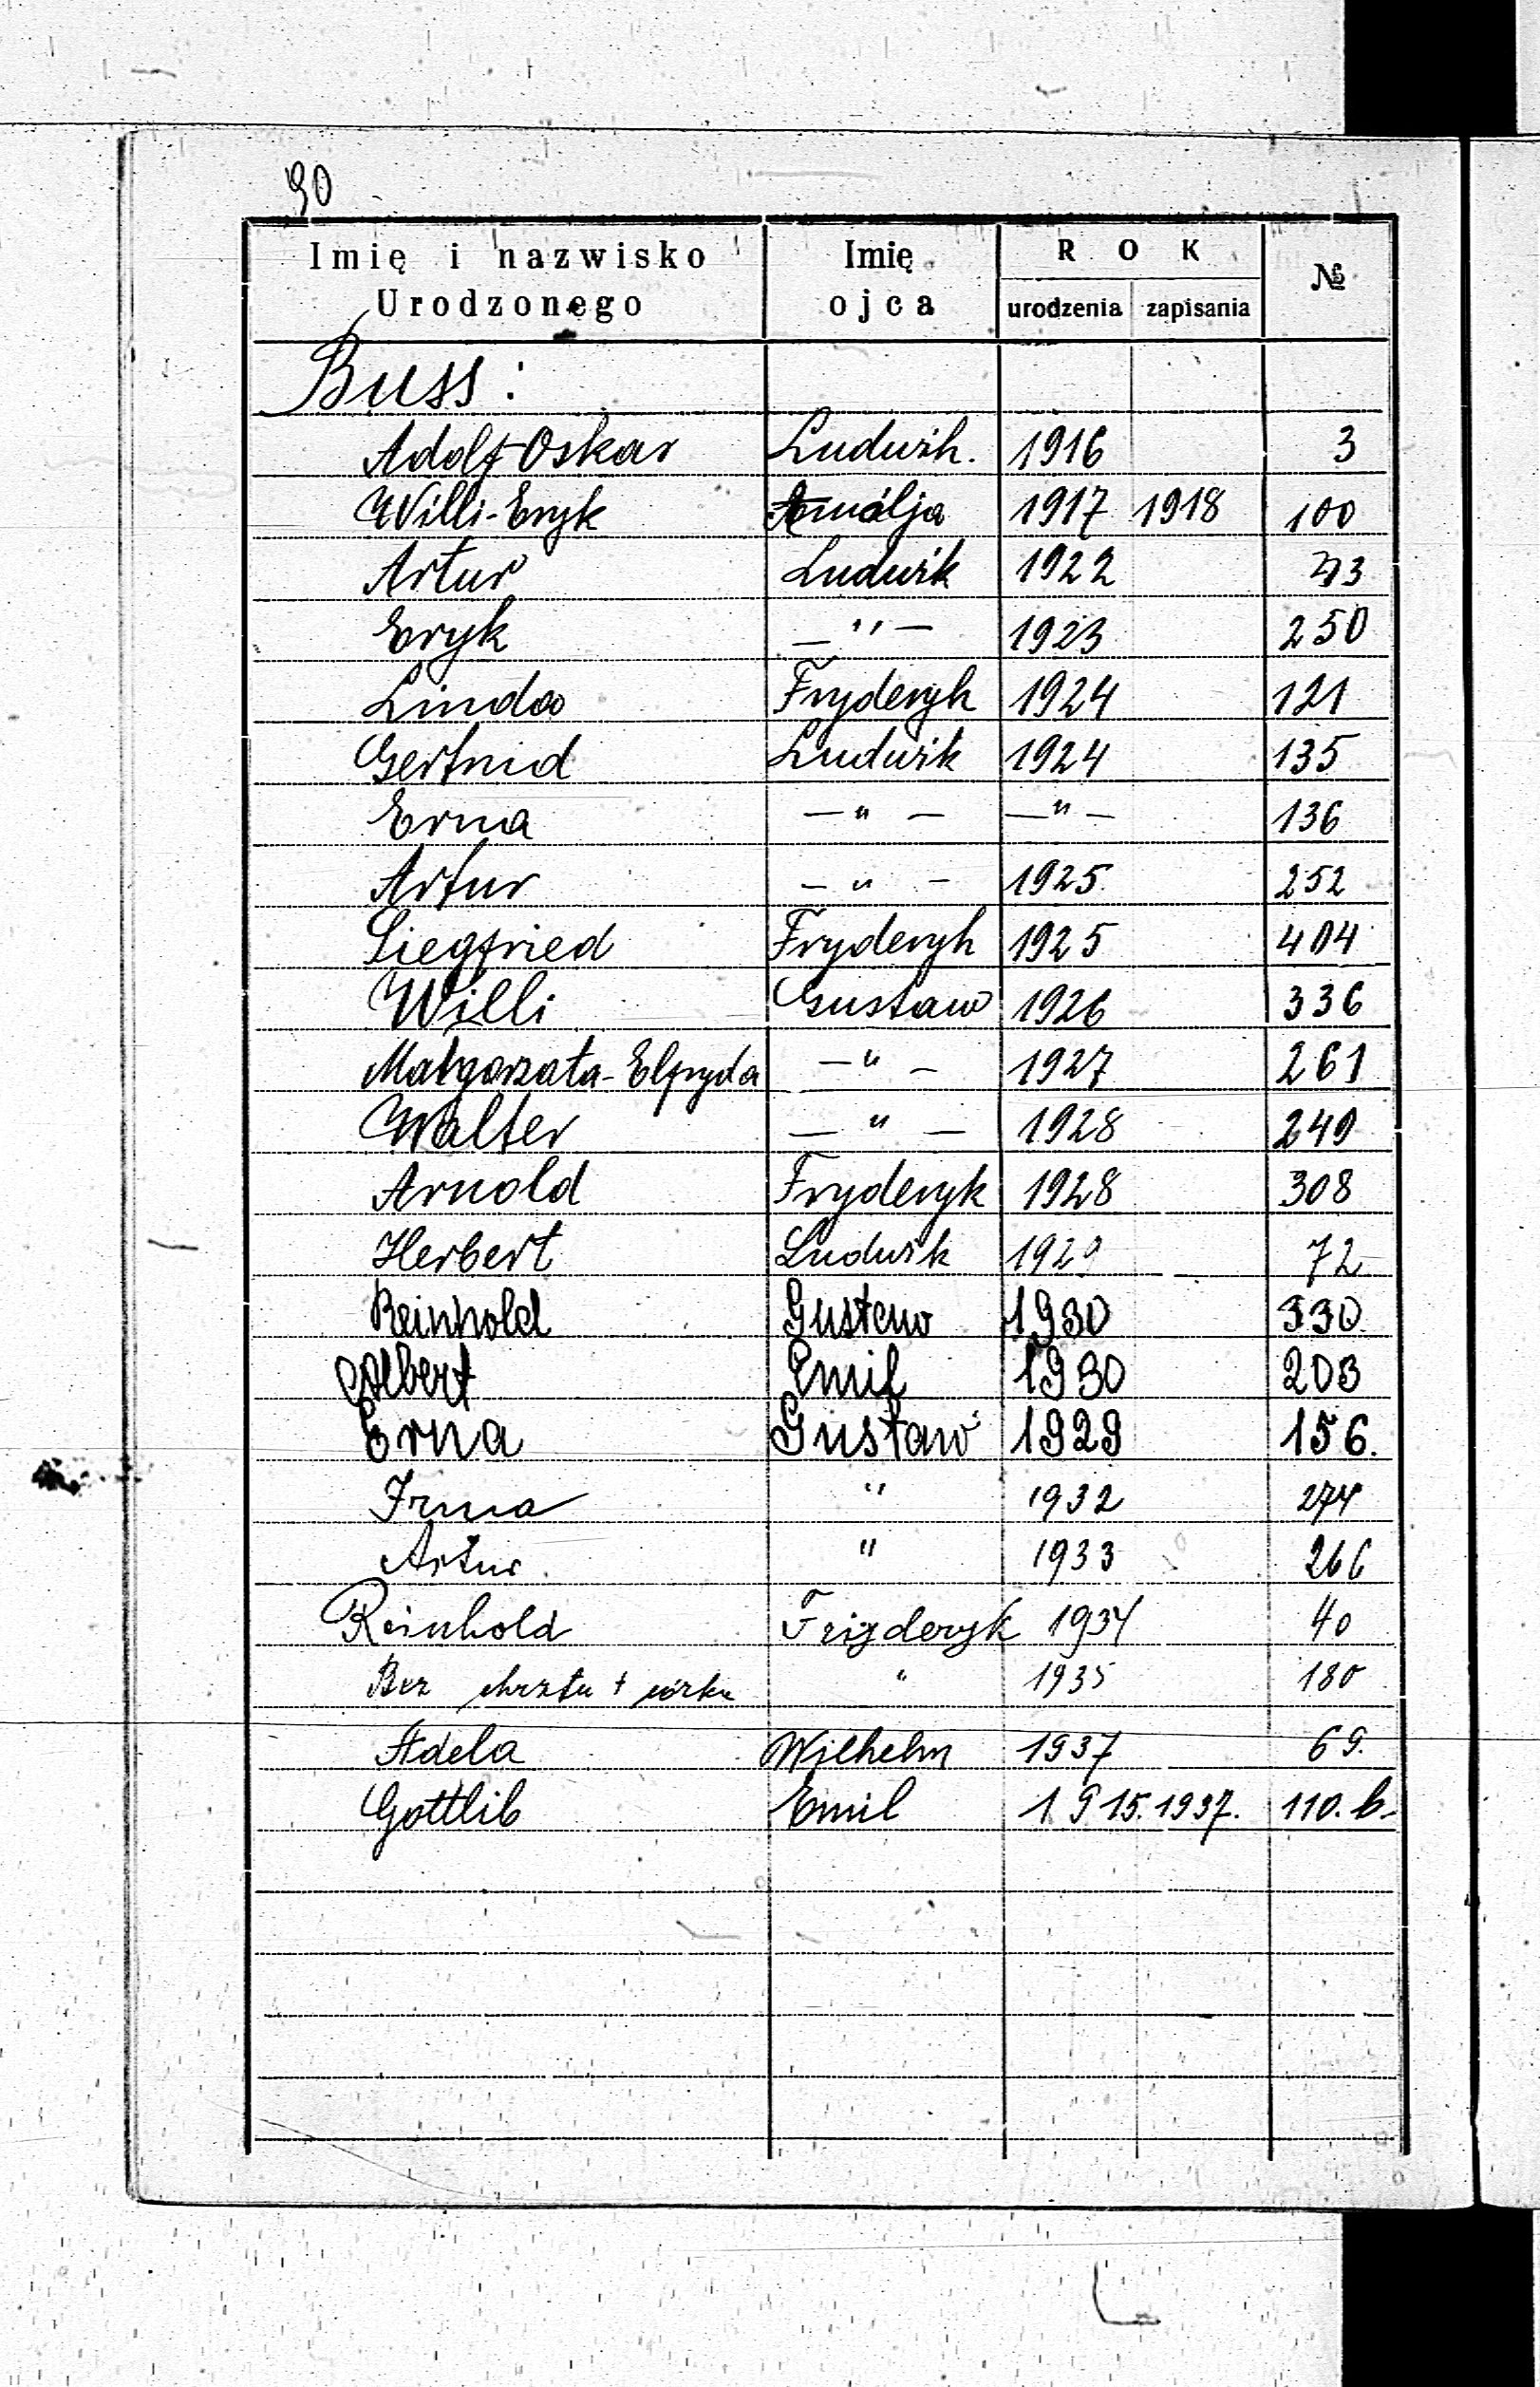 90
Imię i nazwisko Urodzonego Imię ojca ROK urodzenia zapisania №
Buss:
Adolf-Oskar Ludwik. 1916 3
Willi-Eryk Amalja 1917 1918 100
Artur Ludwik 1922
Eryk —"— 1923 250
Linda Fryderyk 1924 121
Gertrud Ludwik 1924 135
Erna —"— —"— 136
Artur —"— 1925 252
Siegfried Fryderyk 1925 404
Willi Gustaw 1926 336
Małgorzata-Elfryda —"— 1927 261
Walter —"— 1928 249
Arnold Fryderyk 1928 308
Herbert Ludwik 1929 72
Reinhold Gustaw 1930 330
Albert Emil 1930 203
Erna Gustaw 1929 156.
Irma " 1932 274
Artur " 1933 266
Reinhold Fryderyk 1934 40
Bez chrztu + córka " 1935 180
Adela Wilhelm 1937 69.
Gottlib Emil 1915. 1937. 110.b.